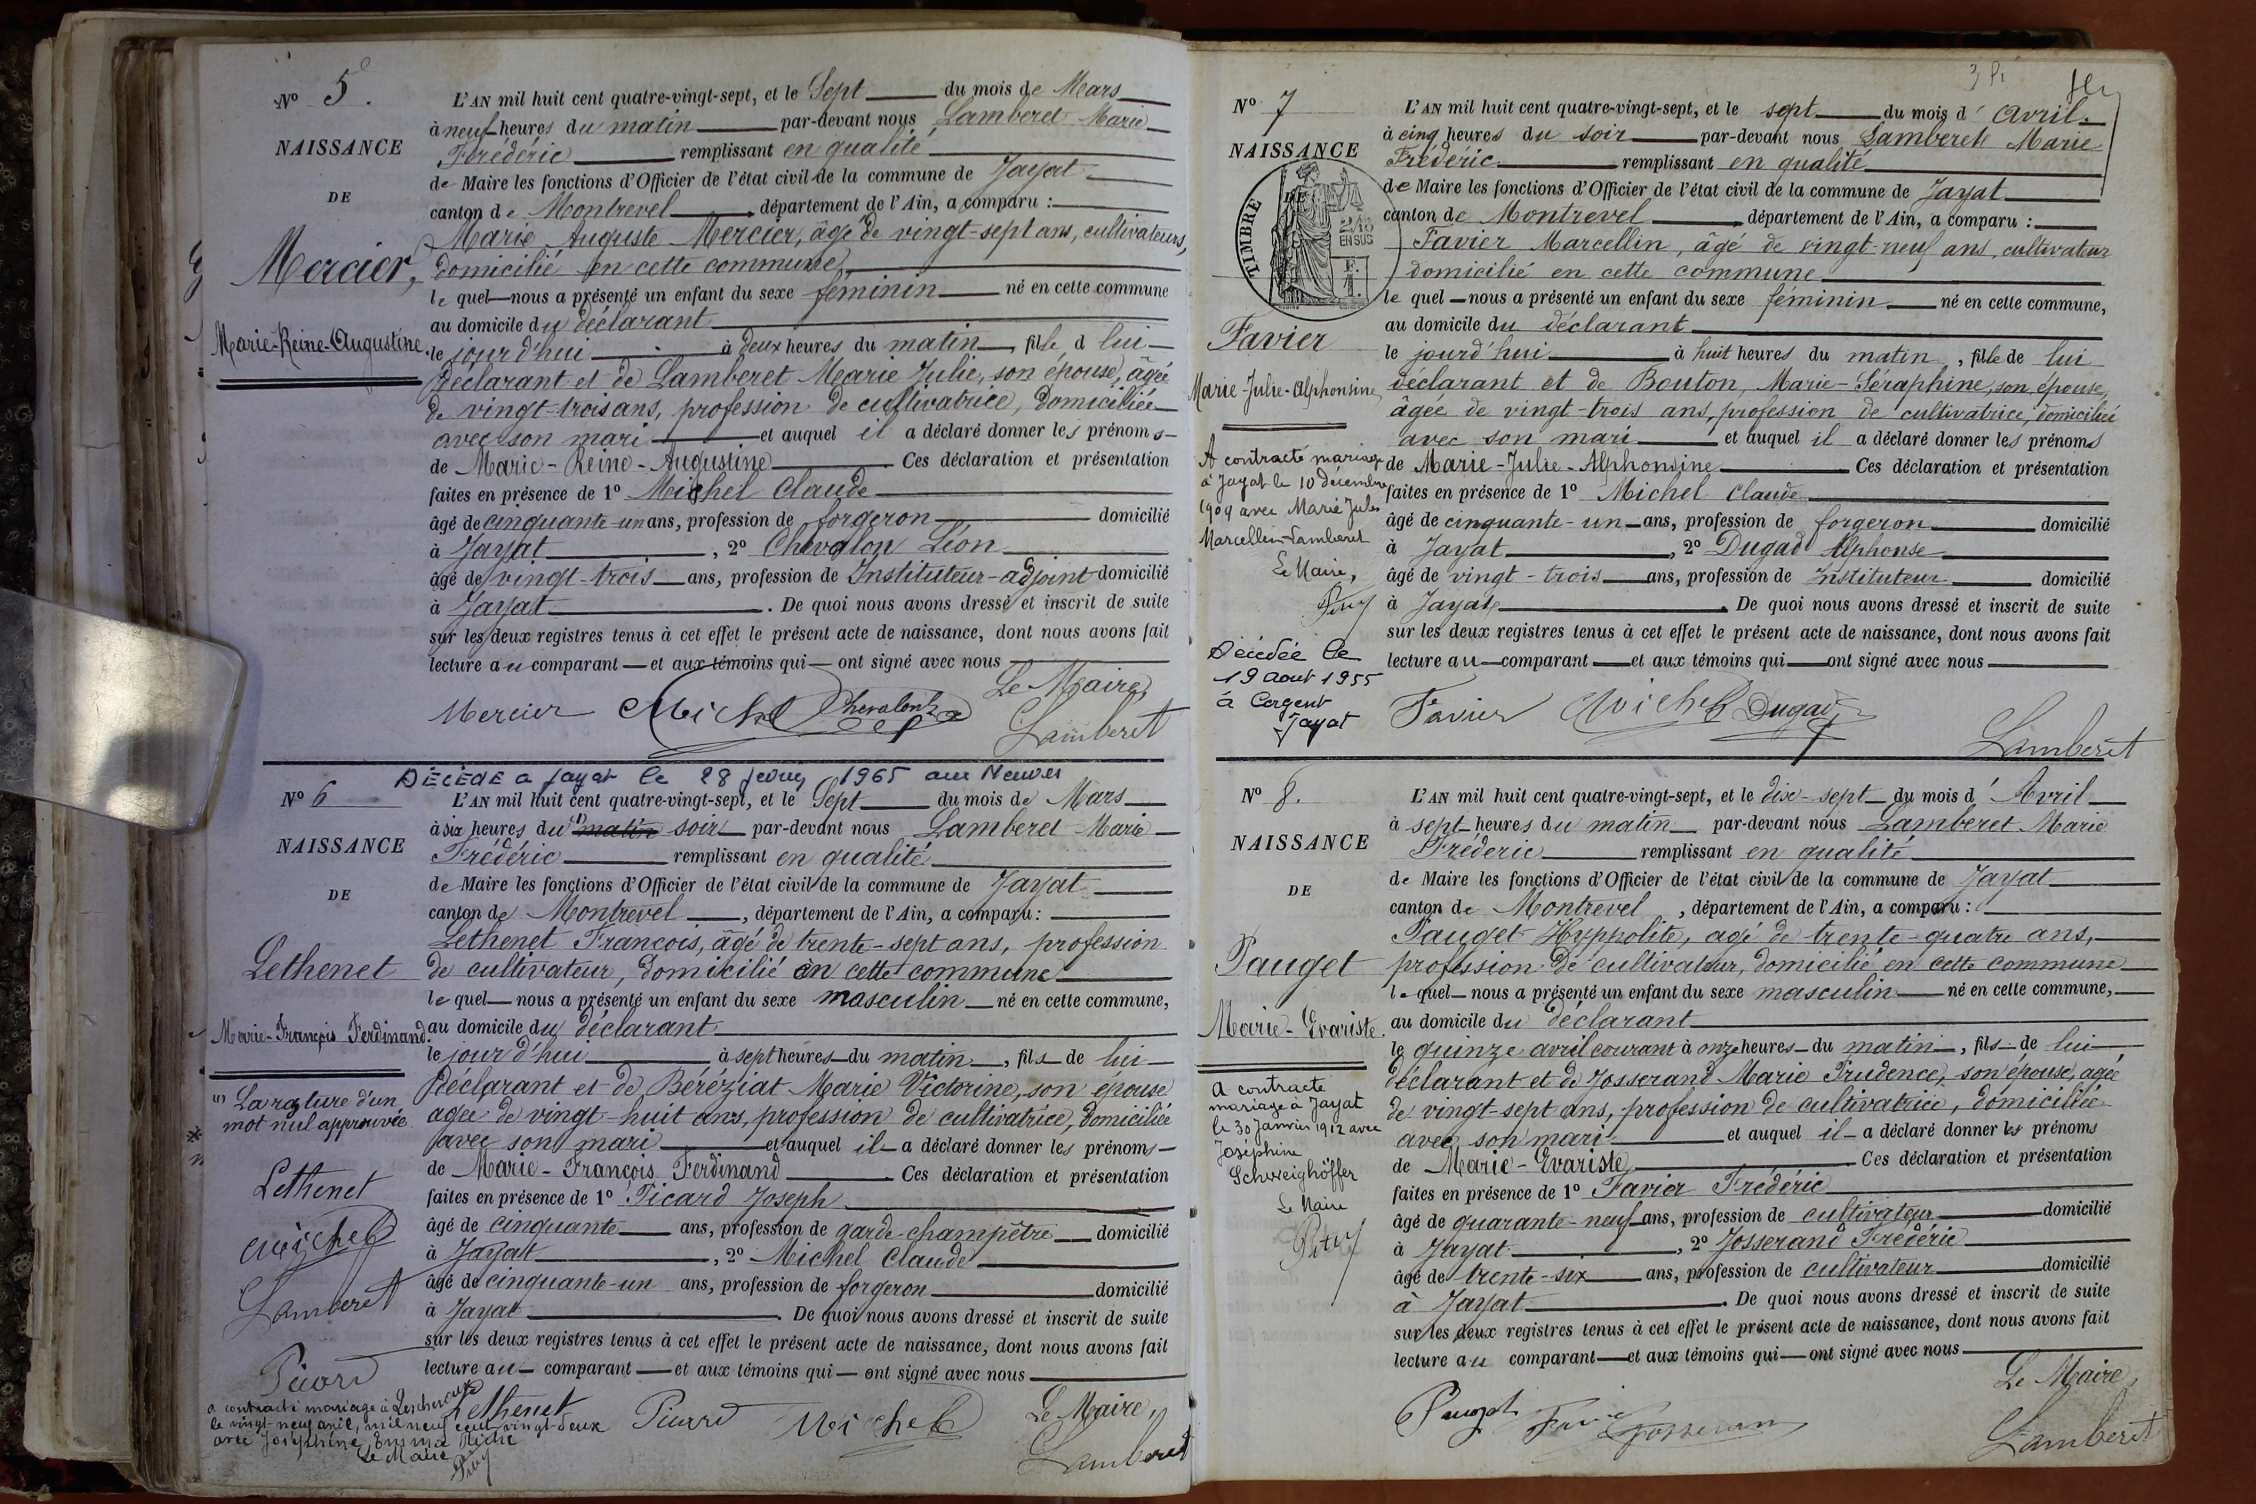 No 5.
NAISSANCE
DE
Mercier,
Marie-Reine-Augustine.
L'AN mil huit cent quatre-vingt-sept, et le Sept du mois de Mars
à neuf heures du matin par-devant nous Lamberet Marie
Frédéric remplissant en qualité
de Maire les fonctions d'Officier de l'état civil de la commune de Jayat
canton de Montrevel, département de l'Ain, a comparu :
Marie Auguste Mercier, âgé de vingt-sept ans, cultivateurs,
domicilié en cette commune,
lequel nous a présenté un enfant du sexe féminin né en cette commune
au domicile du déclarant
le jour d'hui à deux heures du matin, fille d lui
déclarant et de Lamberet Marie Julie, son épouse, âgée
de vingt-trois ans, profession de cultivatrice, domiciliée
avec son mari et auquel il a déclaré donner les prénoms
de Marie-Reine-Augustine Ces déclaration et présentation
faites en présence de 1º Michel Claude
âgé de cinquante-un ans, profession de forgeron domicilié
à Jayat, 2º Chevalon Léon
âgé de vingt-trois ans, profession de Instituteur-adjoint domicilié
à Jayat. De quoi nous avons dressé et inscrit de suite
sur les deux registres tenus à cet effet le présent acte de naissance, dont nous avons fait
lecture au comparant et aux témoins qui ont signé avec nous
Le Maire,
Mercier Michel Chevalon Lamberet
DÉCÉDÉ a Jayat le 28 1965 aux
No 6
NAISSANCE
DE
Lethenet
Marie-François Ferdinand.
(1) La rature d'un
mot nul approuvée
Lethenet
Michel
Lamberet
Picard
a contracté mariage à Lescheroux
le vingt-neuf avril, mil neuf cent vingt-deux
avec Joséphine, Emma
Le Maire
L'AN mil huit cent quatre-vingt-sept, et le Sept du mois de Mars
à six heures du (1) matin soir par-devant nous Lamberet Marie
Frédéric remplissant en qualité
de Maire les fonctions d'Officier de l'état civil de la commune de Jayat
canton de Montrevel, département de l'Ain, a comparu :
Lethenet François, âgé de trente-sept ans, profession
de cultivateur, domicilié en cette commune
lequel nous a présenté un enfant du sexe masculin né en cette commune,
au domicile du déclarant
le jour d'hui à sept heures du matin, fils de lui
déclarant et de Béréziat Marie Victorine, son épouse
agée de vingt-huit ans, profession de cultivatrice, domiciliée
avec son mari et auquel il a déclaré donner les prénoms
de Marie-François Ferdinand Ces déclaration et présentation
faites en présence de 1º Picard Joseph
âgé de cinquante ans, profession de garde-champêtre domicilié
à Jayat, 2º Michel Claude
âgé de cinquante-un ans, profession de forgeron domicilié
à Jayat. De quoi nous avons dressé et inscrit de suite
sur les deux registres tenus à cet effet le présent acte de naissance, dont nous avons fait
lecture au comparant et aux témoins qui ont signé avec nous
Lethenet Picard Michel Le Maire,
Lamberet
No 7
NAISSANCE
DE
TIMBRE
2/10
EN SUS
Favier
Marie-Julie-Alphonsine
A contracté mariage
à Jayat le 10 décembre
1909 avec Marie Jules
Marcellin Lamberet
Le Maire,
Décédée le
19 aout 1955
à Corgent
Jayat
L'AN mil huit cent quatre-vingt-sept, et le sept du mois d'Avril.
à cinq heures du soir par-devant nous Lamberet Marie
Frédéric remplissant en qualité
de Maire les fonctions d'Officier de l'état civil de la commune de Jayat
canton de Montrevel, département de l'Ain, a comparu :
Favier Marcellin, âgé de vingt-neuf ans, cultivateur
domicilié en cette commune
lequel nous a présenté un enfant du sexe féminin né en cette commune,
au domicile du déclarant
le jourd'hui à huit heures du matin, fille de lui
déclarant et de Bouton, Marie-Séraphine, son épouse,
âgée de vingt-trois ans, profession de cultivatrice, domiciliée
avec son mari et auquel il a déclaré donner les prénoms
de Marie-Julie-Alphonsine Ces déclaration et présentation
faites en présence de 1º Michel Claude
âgé de cinquante-un ans, profession de forgeron domicilié
à Jayat, 2º Dugad Alphonse
âgé de vingt-trois ans, profession de Instituteur domicilié
à Jayat. De quoi nous avons dressé et inscrit de suite
sur les deux registres tenus à cet effet le présent acte de naissance, dont nous avons fait
lecture au comparant et aux témoins qui ont signé avec nous
Favier Michel Dugad
Lamberet
No 8.
NAISSANCE
DE
Pauget
Marie-Evariste.
A contracté
mariage à Jayat
le 30 Janvier 1912 avec
Joséphine
Schweighöffer
Le Maire
L'AN mil huit cent quatre-vingt-sept, et le dix-sept du mois d'Avril
à sept heures du matin par-devant nous Lamberet Marie
Fréderic remplissant en qualité
de Maire les fonctions d'Officier de l'état civil de la commune de Jayat
canton de Montrevel, département de l'Ain, a comparu :
Pauget Hyppolite, agé de trente-quatre ans,
profession de cultivateur, domicilié en cette commune
lequel nous a présenté un enfant du sexe masculin né en cette commune,
au domicile du déclarant
le quinze avril courant à onze heures du matin, fils de lui
déclarant et de Josserand Marie Prudence, son épouse, agée
de vingt-sept ans, profession de cultivatrice, domiciliée
avec son mari et auquel il a déclaré donner les prénoms
de Marie-Evariste Ces déclaration et présentation
faites en présence de 1º Favier Frédéric
âgé de quarante-neuf ans, profession de cultivateur domicilié
à Jayat, 2º Josserand Frédéric
âgé de trente-six ans, profession de cultivateur domicilié
à Jayat. De quoi nous avons dressé et inscrit de suite
sur les deux registres tenus à cet effet le présent acte de naissance, dont nous avons fait
lecture au comparant et aux témoins qui ont signé avec nous
Le Maire,
Pauget Favier Josseran
Lamberet